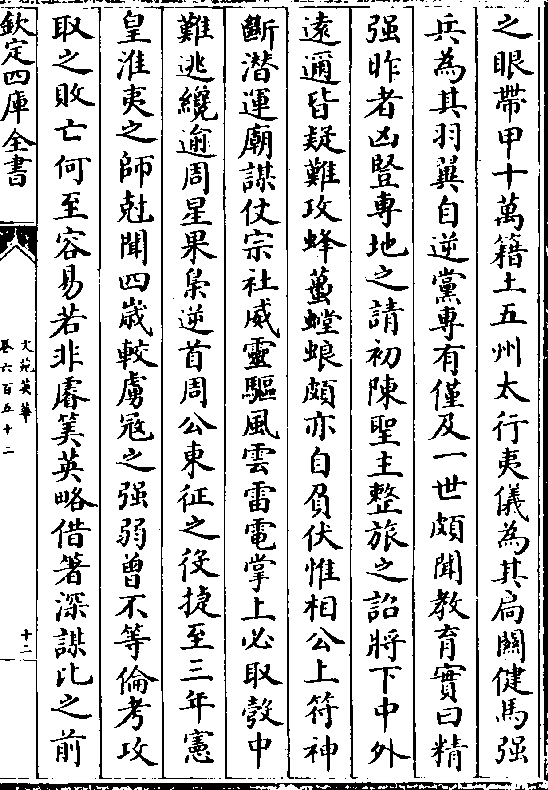 之眼帶甲十萬籍土五州太行夷儀為其扃關健馬强
兵為其羽翼自逆黨專有僅及一世頗聞教育實曰精
强昨者凶豎專地之請初陳聖主整旅之詔將下中外
遠邇皆疑難攻蜂蠆螳蜋頗亦自負伏惟相公上符神
斷潜運廟謀仗宗社威靈驅風雲雷電掌上必取彀中
難逃纔逾周星果梟逆首周公東征之役捷至三年憲
皇淮夷之師尅聞四歲較虜寇之强弱曾不等倫考攻
取之敗亡何至容易若非睿筭英略借箸深謀比之前
欽定四庫全書
文苑英華
卷六百五十二
十二